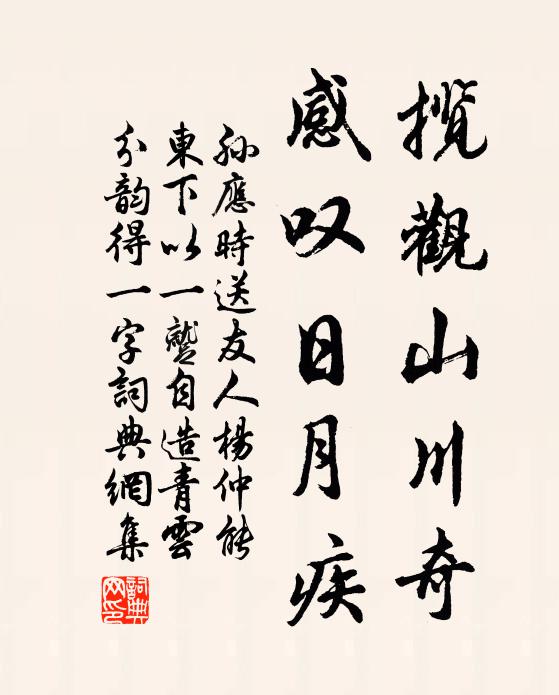 揽觀山川奇
感叹日月疾
孫應時送友人楊仲能
東下以一蹔自造青雲
分韵得一字詞典網集
詞典網印